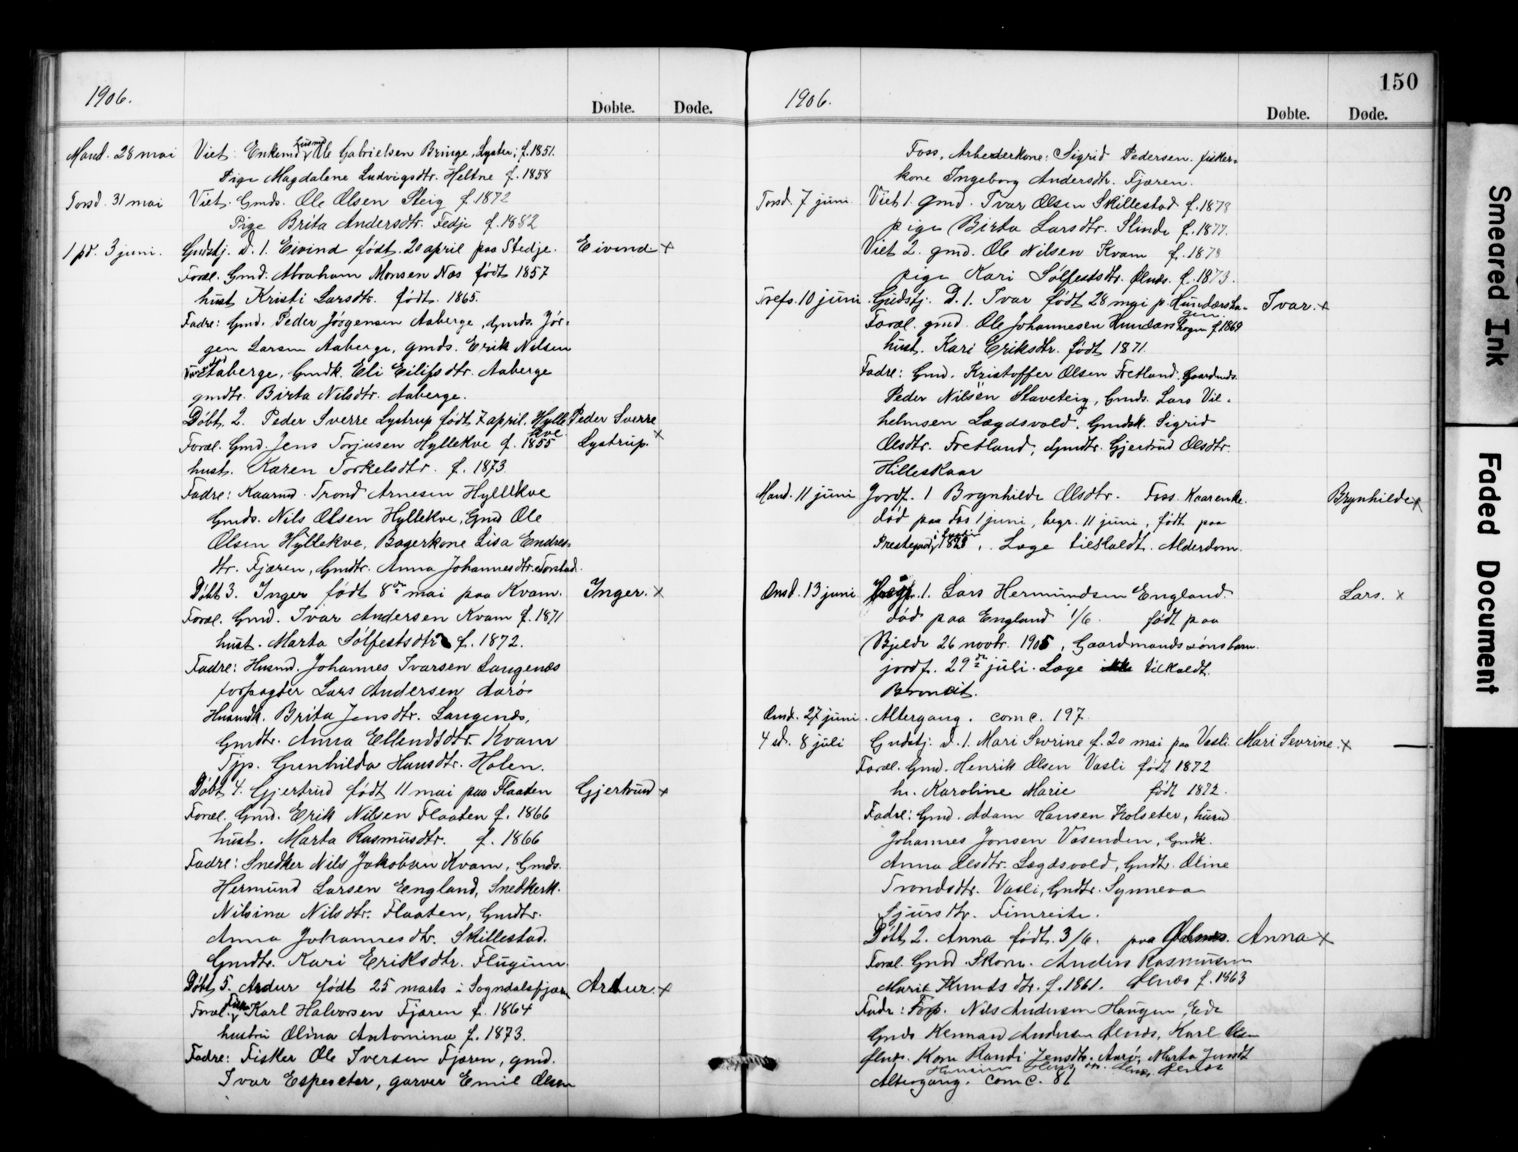 1906.
Døbte. Døde.
Mand. 28 mai Viet: Enkemd Husmd Ole Gabrielsen Bringe, Lyster, f. 1851.
Pige Magdalene Ludvigsdtr. Heltne f. 1858
Torsd. 31 mai Viet: Gmds. Ole Olsen Steig f. 1872
Pige Brita Andersdtr. Fedje f. 1882
1 pd. 3 juni. Gudstj. D. 1. Eivind født 20 april paa Stedje. Eivind x
Foræl. Gmd. Abraham Monsen Næs født 1857
hust. Kristi Larsdtr. født 1865.
Fadre: Gmd. Peder Jørgensen Aaberge, Gmds. Jør-
gen Larsen Aaberge, gmds. Erik Nilsen
Aaberge, Gmdk. Eli Eilifsdtr. Aaberge
gmdtr. Birta Nilsdtr. Aaberge.
Døbt 2. Peder Sverre Lystrup født 7 april. Hylle Peder Sverre
kve
Foræl. Gmd. Jens Torjusen Hyllekve f. 1855 Lystrup. x
hust. Karen Torkelsdtr. f. 1873
Fadre: Kaarmd. Trond Arnesen Hyllekve
Gmds. Nils Olsen Hyllekve, Gmd Ole
Olsen Hyllekve, Bagerkone Lisa Endres-
dtr. Fjæren, Gmdtr. Anna Johannesdtr. Torstad.
Døbt 3. Inger født 8de mai paa Kvam. Inger. x
Foræl. Gmd. Ivar Andersen Kvam f. 1871
hust. Marta Sølfestsdtr f. 1872.
Fadre: Husmd. Johannes Ivarsen Langenæs
forpagter Lars Andersen Aarø
Husmdk. Brita Jensdtr. Langenæs,
Gmdtr. Anna Ellendsdtr. Kvam
Tjp. Gunhilda Hansdtr. Holen.
Døbt 4. Gjertrud født 11 mai paa Flaaten Gjertrud x
Foræl. Gmd. Erik Nilsen Flaaten f. 1866
hust. Marta Rasmusdtr. f. 1866
Fadre: Snedker Nils Jakobsen Kvam, Gmds.
Hermund Larsen England, Snedkerk.
Nilsina Nilsdtr. Flaaten, Gmdtr.
Anna Johannesdtr. Skillestad.
Gmdtr. Kari Eriksdtr. Flugum.
Døbt 5. Artur født 25 marts i Sogndalsfjæren Artur. x
Foræl. Karl Halvorsen Fjæren f. 1864
hustru Olina Antomina f. 1873.
Fadre: Fisker Ole Iversen Fjæren, gmd.
Ivar Espeseter, garver Emil Olsen
1906.
150
Døbte. Døde.
Foss, Arbeiderkone: Sigrid Pedersen. fisker-
kone Ingeborg Andersdtr. Fjæren.
Torsd. 7 juni Viet 1. gmd. Ivar Olsen Skillestad f. 1878
pige Birta Larsdtr. Slinde f. 1877.
Viet 2. gmd. Ole Nilsen Kvam f. 1878
pige Kari Sølfestsdtr. Ølnæs. f. 1873.
Trefs. 10 juni Gudstj. D. 1. Ivar født 28 mai p. Hundærska- Ivar. x
gen.
Foræl. gmd. Ole Johannesen Hundærskogen f. 1869
hust. Kari Eriksdtr. født 1871
Fadre: Gmd. Kristoffer Olsen Fretland. Gaardmds.
Peder Nilsen Staveteig, Gmds. Lars Vil-
helmsen Lægdsvold, Gmdsk. Sigrid
Olsdtr. Fretland, Gmdtr. Gjertrud Olsdtr.
Hilleskaar
Mand. 11 juni Jordf. 1 Brynhilde Olsdtr. Foss Kaarenke. Brynhilde x
død paa Fos 1 juni, begr. 11 juni, født paa
Prestegard, 1823, Læge tilkaldt. Alderdom.
Onsd. 13 juni 1. Lars Hermundsen England Lars. x
død paa England 1/6. født paa
Bjelde 26 novbr. 1905, Gaardmandssønsbarn.
jordf. 29de juli. Læge tilkaldt.
Bronchit.
Onsd. 27 juni. Altergang. comc. 197
4 sd. 8 juli Gudstj. D. 1. Mari Sevrine f. 20 mai paa Vasli Mari Sevrine. x
Foræl. Gmd. Henrik Olsen Vasli født 1872
h. Karoline Marie født 1872.
Fadre: Gmd. Adam Hansen Kolseter, husm
Johannes Jonsen Vasenden, Gmdk.
Anna Olsdtr. Lægdsvold, Gmdtr. Oline
Trondsdtr. Vasli, Gmdtr. Synneva
Sjursdtr. Fimreite.
Døbt 2. Anna født 3/6. paa Ølnæs. Anna x
Foræl. Gmd Skom. Anders Rasmussen
Marit Knudsdtr. f. 1861. Ølnæs f. 1863
Fadr: Forp. Nils Andersen Haugen, Eide
Gmds Herman Andersen Ølnæs, Karl Olsen
Ølnæs. Kone Randi Jensdtr. Aarø, Marta Jensdt
Ølnæs
Altergang. comc. 86
Smeared Ink
Faded Document